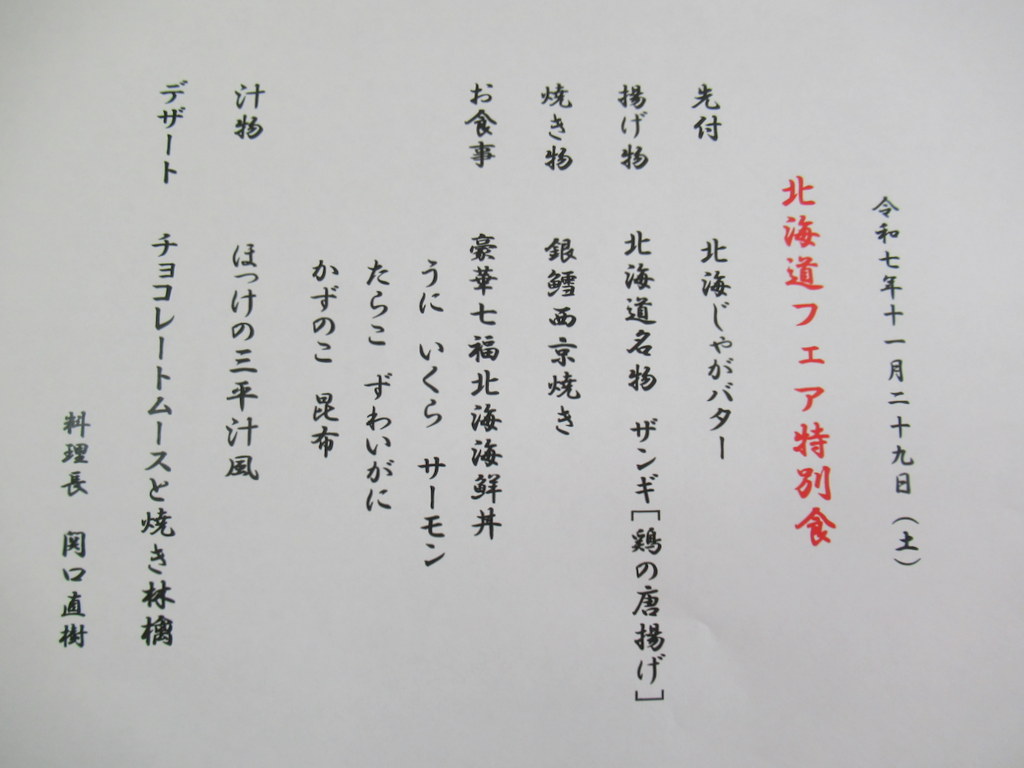 令和七年十一月二十九日(土)
北海道フェア特別食
先付 北海じゃがバター
揚げ物 北海道名物 ザンギ[鶏の唐揚げ]
焼き物 銀鱈西京焼き
お食事 豪華七福北海海鮮丼
うに いくら サーモン
たらこ ずわいがに
かずのこ 昆布
汁物 ほっけの三平汁風
デザート チョコレートムースと焼き林檎
料理長 関口直樹